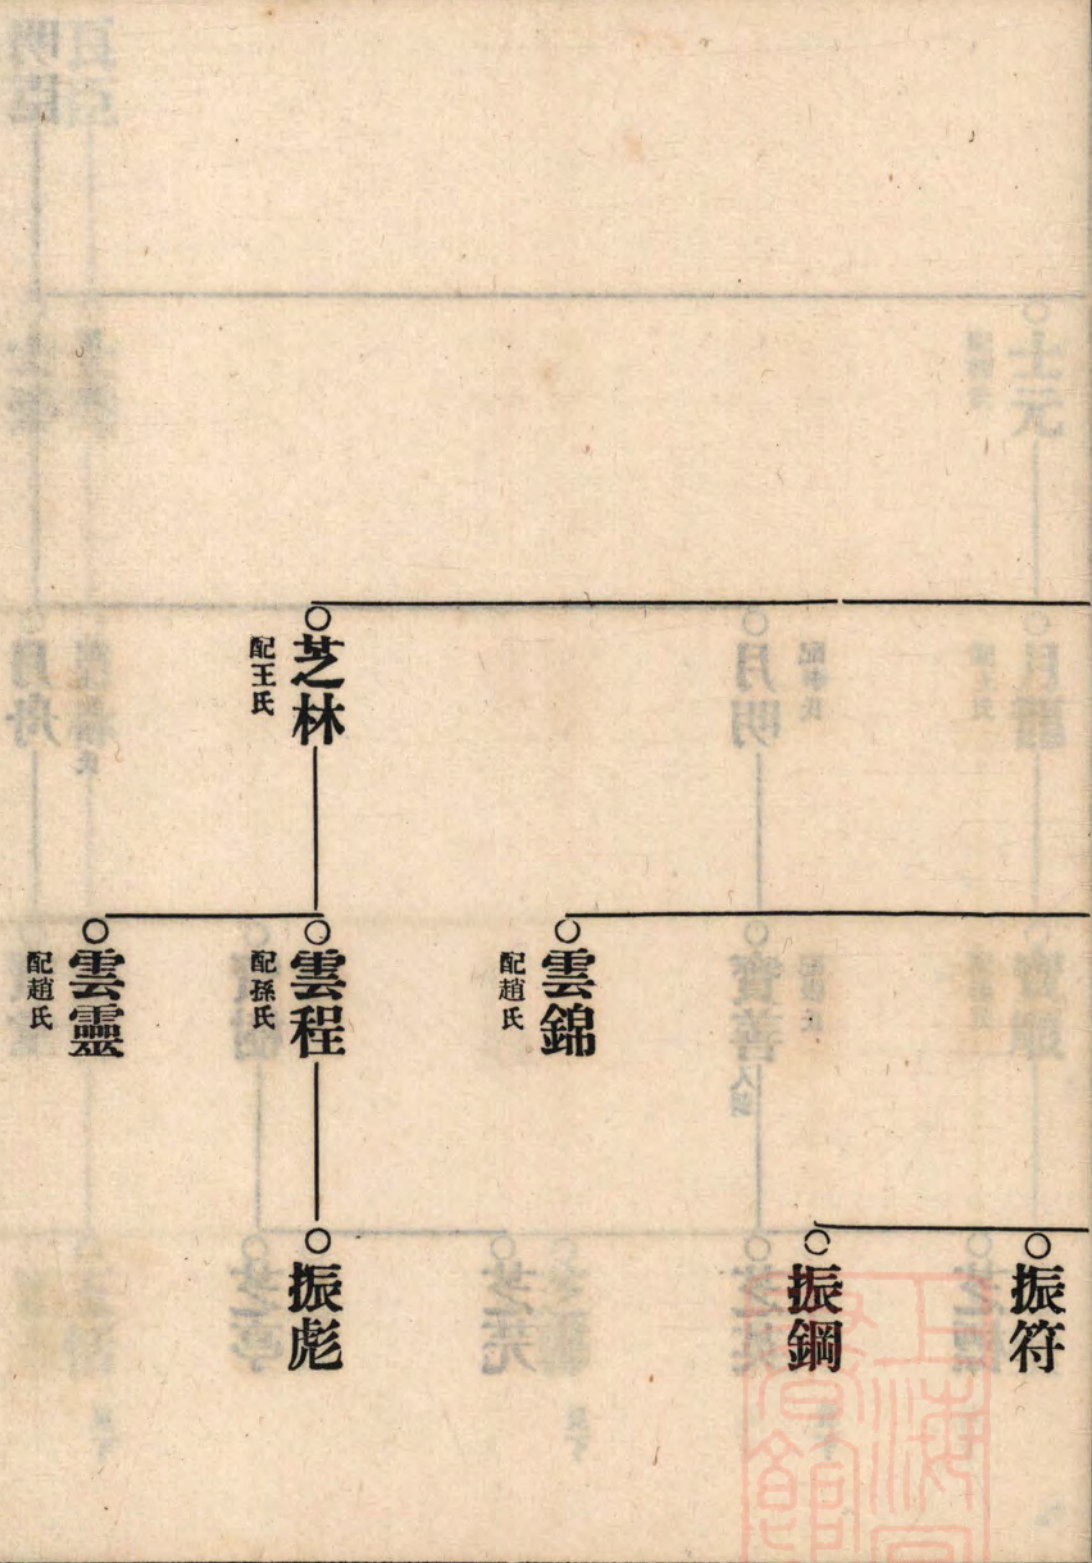 芝林
配王氏
雲錦
配趙氏
雲程
配孫氏
雲靈
配趙氏
振符
振鋼
振彪